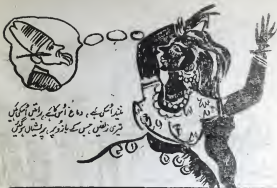 نیند اُسکی ہے، دماغ اُسکا ہے، راتیں اُسکی ہیں
تیری زلفیں جس کے بازو پر پریشاں ہوگئیں